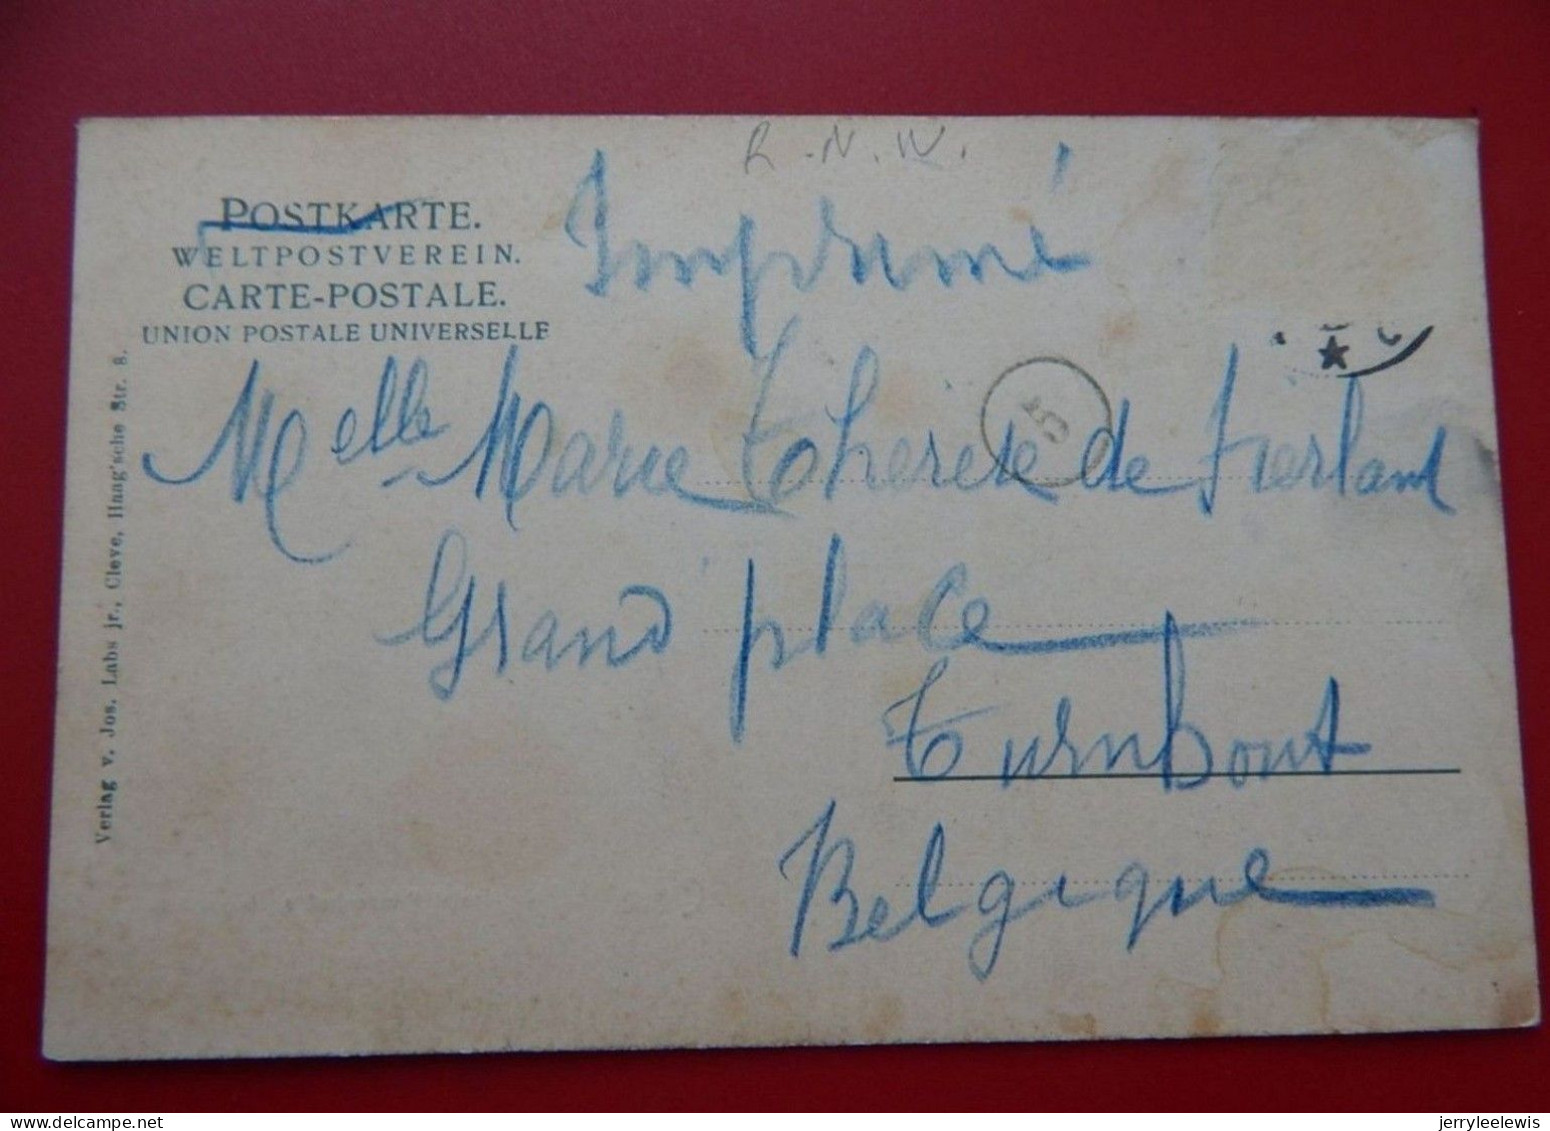 R.N.W.
POSTKARTE.
WELTPOSTVEREIN.
CARTE-POSTALE.
UNION POSTALE UNIVERSELLE
Imprimé
5
Melle Marie Therese de Fierlant
Grand place
Turnhout
Belgique
Verlag v. Jos. Labs jr., Cleve, Haag'sche Str. 8.
jerryleelewis